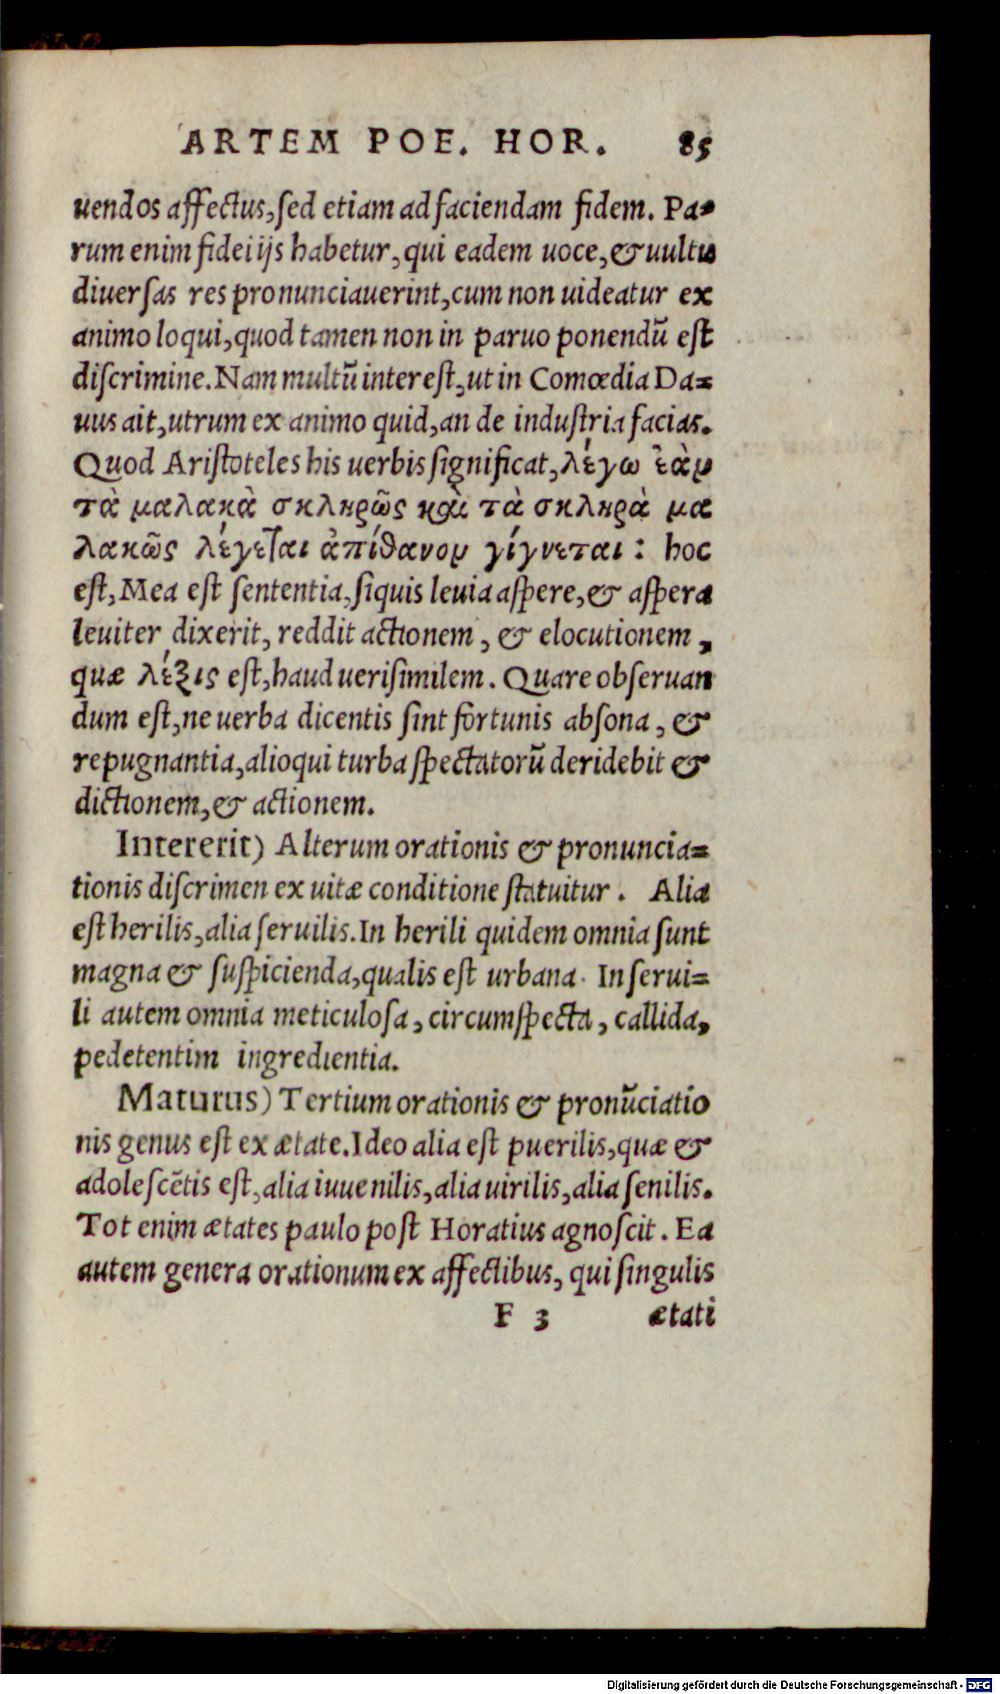 ARTEM POE. HOR. 85
uendos affectus, sed etiam ad faciendam fidem. Pa-
rum enim fidei ijs habetur, qui eadem uoce, & uultu
diuersas res pronunciauerint, cum non uideatur ex
animo loqui, quod tamen non in paruo ponendũ est
discrimine. Nam multũ interest, ut in Comœdia Da=
uus ait, utrum ex animo quid, an de industria facias.
Quod Aristoteles his uerbis significat, λέγω ἐὰν
τὰ μαλακὰ σκληρῶς καὶ τὰ σκληρὰ μα
λακῶς λέγεται ἀπίθανον γίγνεται: hoc
est, Mea est sententia, siquis leuia aspere, & aspera
leuiter dixerit, reddit actionem, & elocutionem,
quæ λέξις est, haud uerisimilem. Quare obseruan
dum est, ne uerba dicentis sint fortunis absona, &
repugnantia, alioqui turba spectatorũ deridebit &
dictionem, & actionem.
Intererit) Alterum orationis & pronuncia=
tionis discrimen ex uitæ conditione statuitur. Alia
est herilis, alia seruilis. In herili quidem omnia sunt
magna & suspicienda, qualis est urbana. In serui=
li autem omnia meticulosa, circumspecta, callida,
pedetentim ingredientia.
Maturus) Tertium orationis & pronũciatio
nis genus est ex ætate. Ideo alia est puerilis, quæ &
adolescẽtis est, alia iuuenilis, alia uirilis, alia senilis.
Tot enim ætates paulo post Horatius agnoscit. Ea
autem genera orationum ex affectibus, qui singulis
F 3 ætati
Digitalisierung gefördert durch die Deutsche Forschungsgemeinschaft - DFG